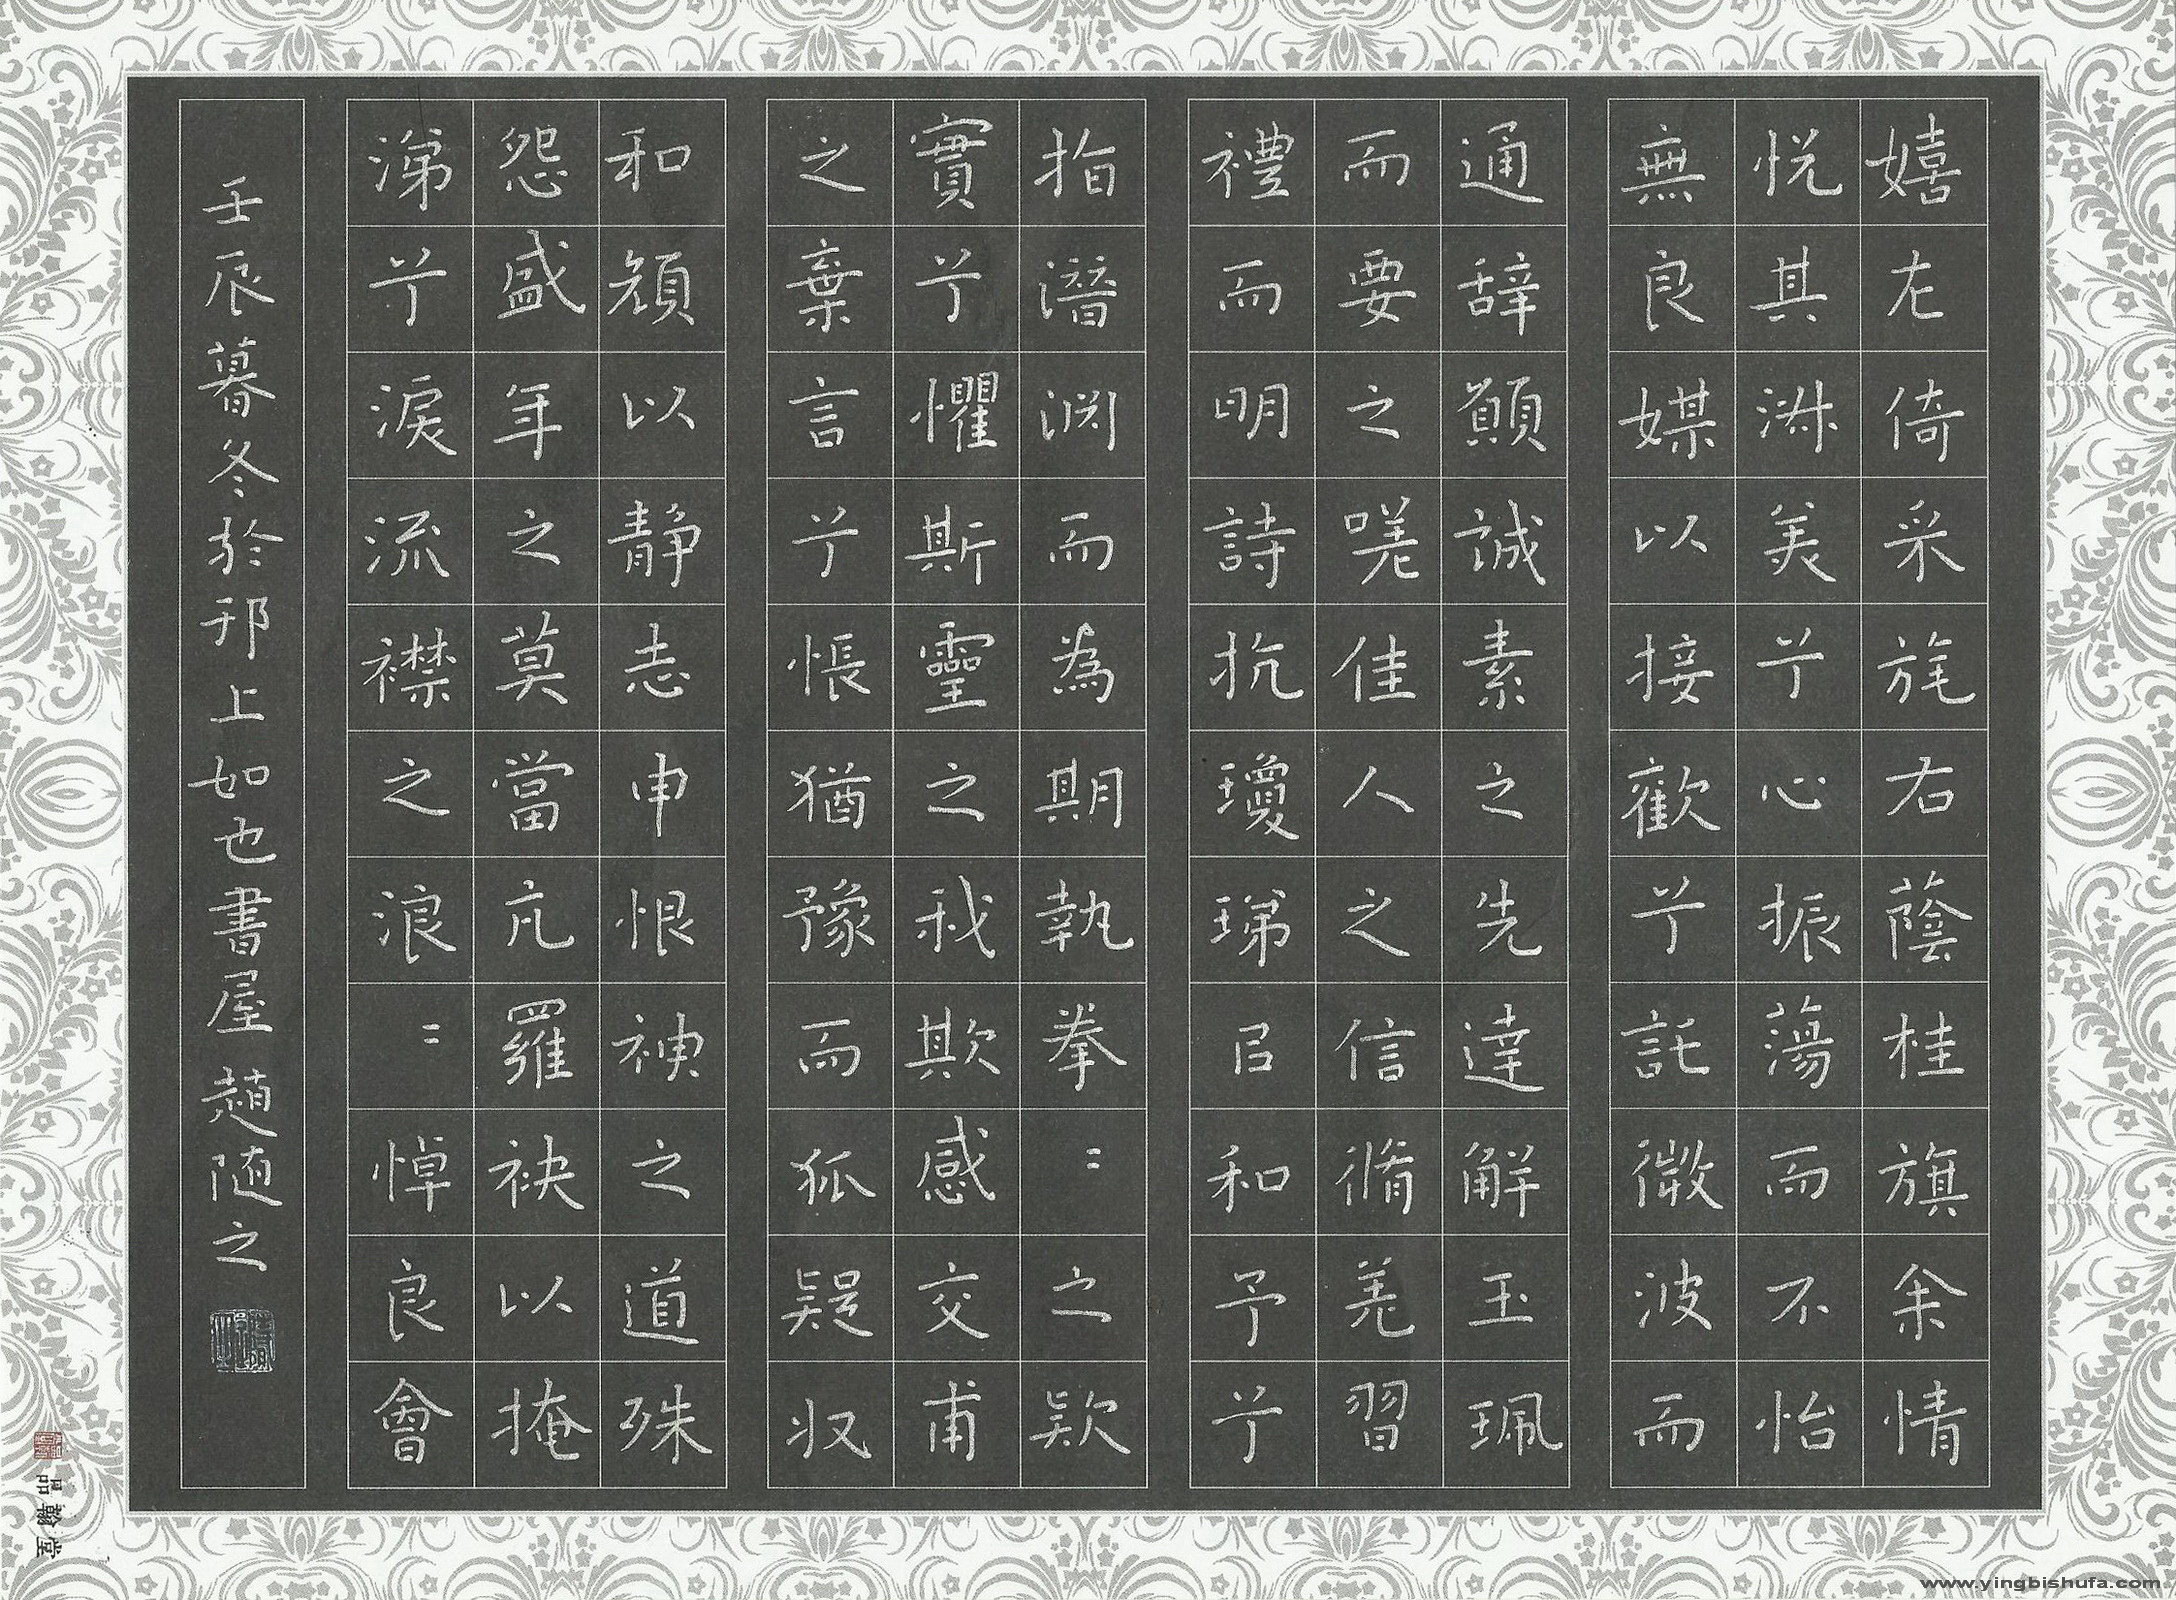 嬉左倚采旄右蔭桂旗余情
悦其淋美兮心振蕩而不怡
無良媒以接歡兮託微波而
通辞願誠素之先達解玉珮
而要之嗟佳人之信脩羌習
禮而明詩抗瓊珶㠯和予兮
指潛渕而為期執拳〻之欵
實兮懼斯靈之我欺感交甫
之棄言兮悵猶豫而狐疑収
和顔以静志申恨神之道殊
怨盛年之莫當亢羅袂以掩
涕兮淚流襟之浪〻悼良會
壬辰暮冬於邗上如也書屋趙随之
品翰堂
www.yingbishufa.com